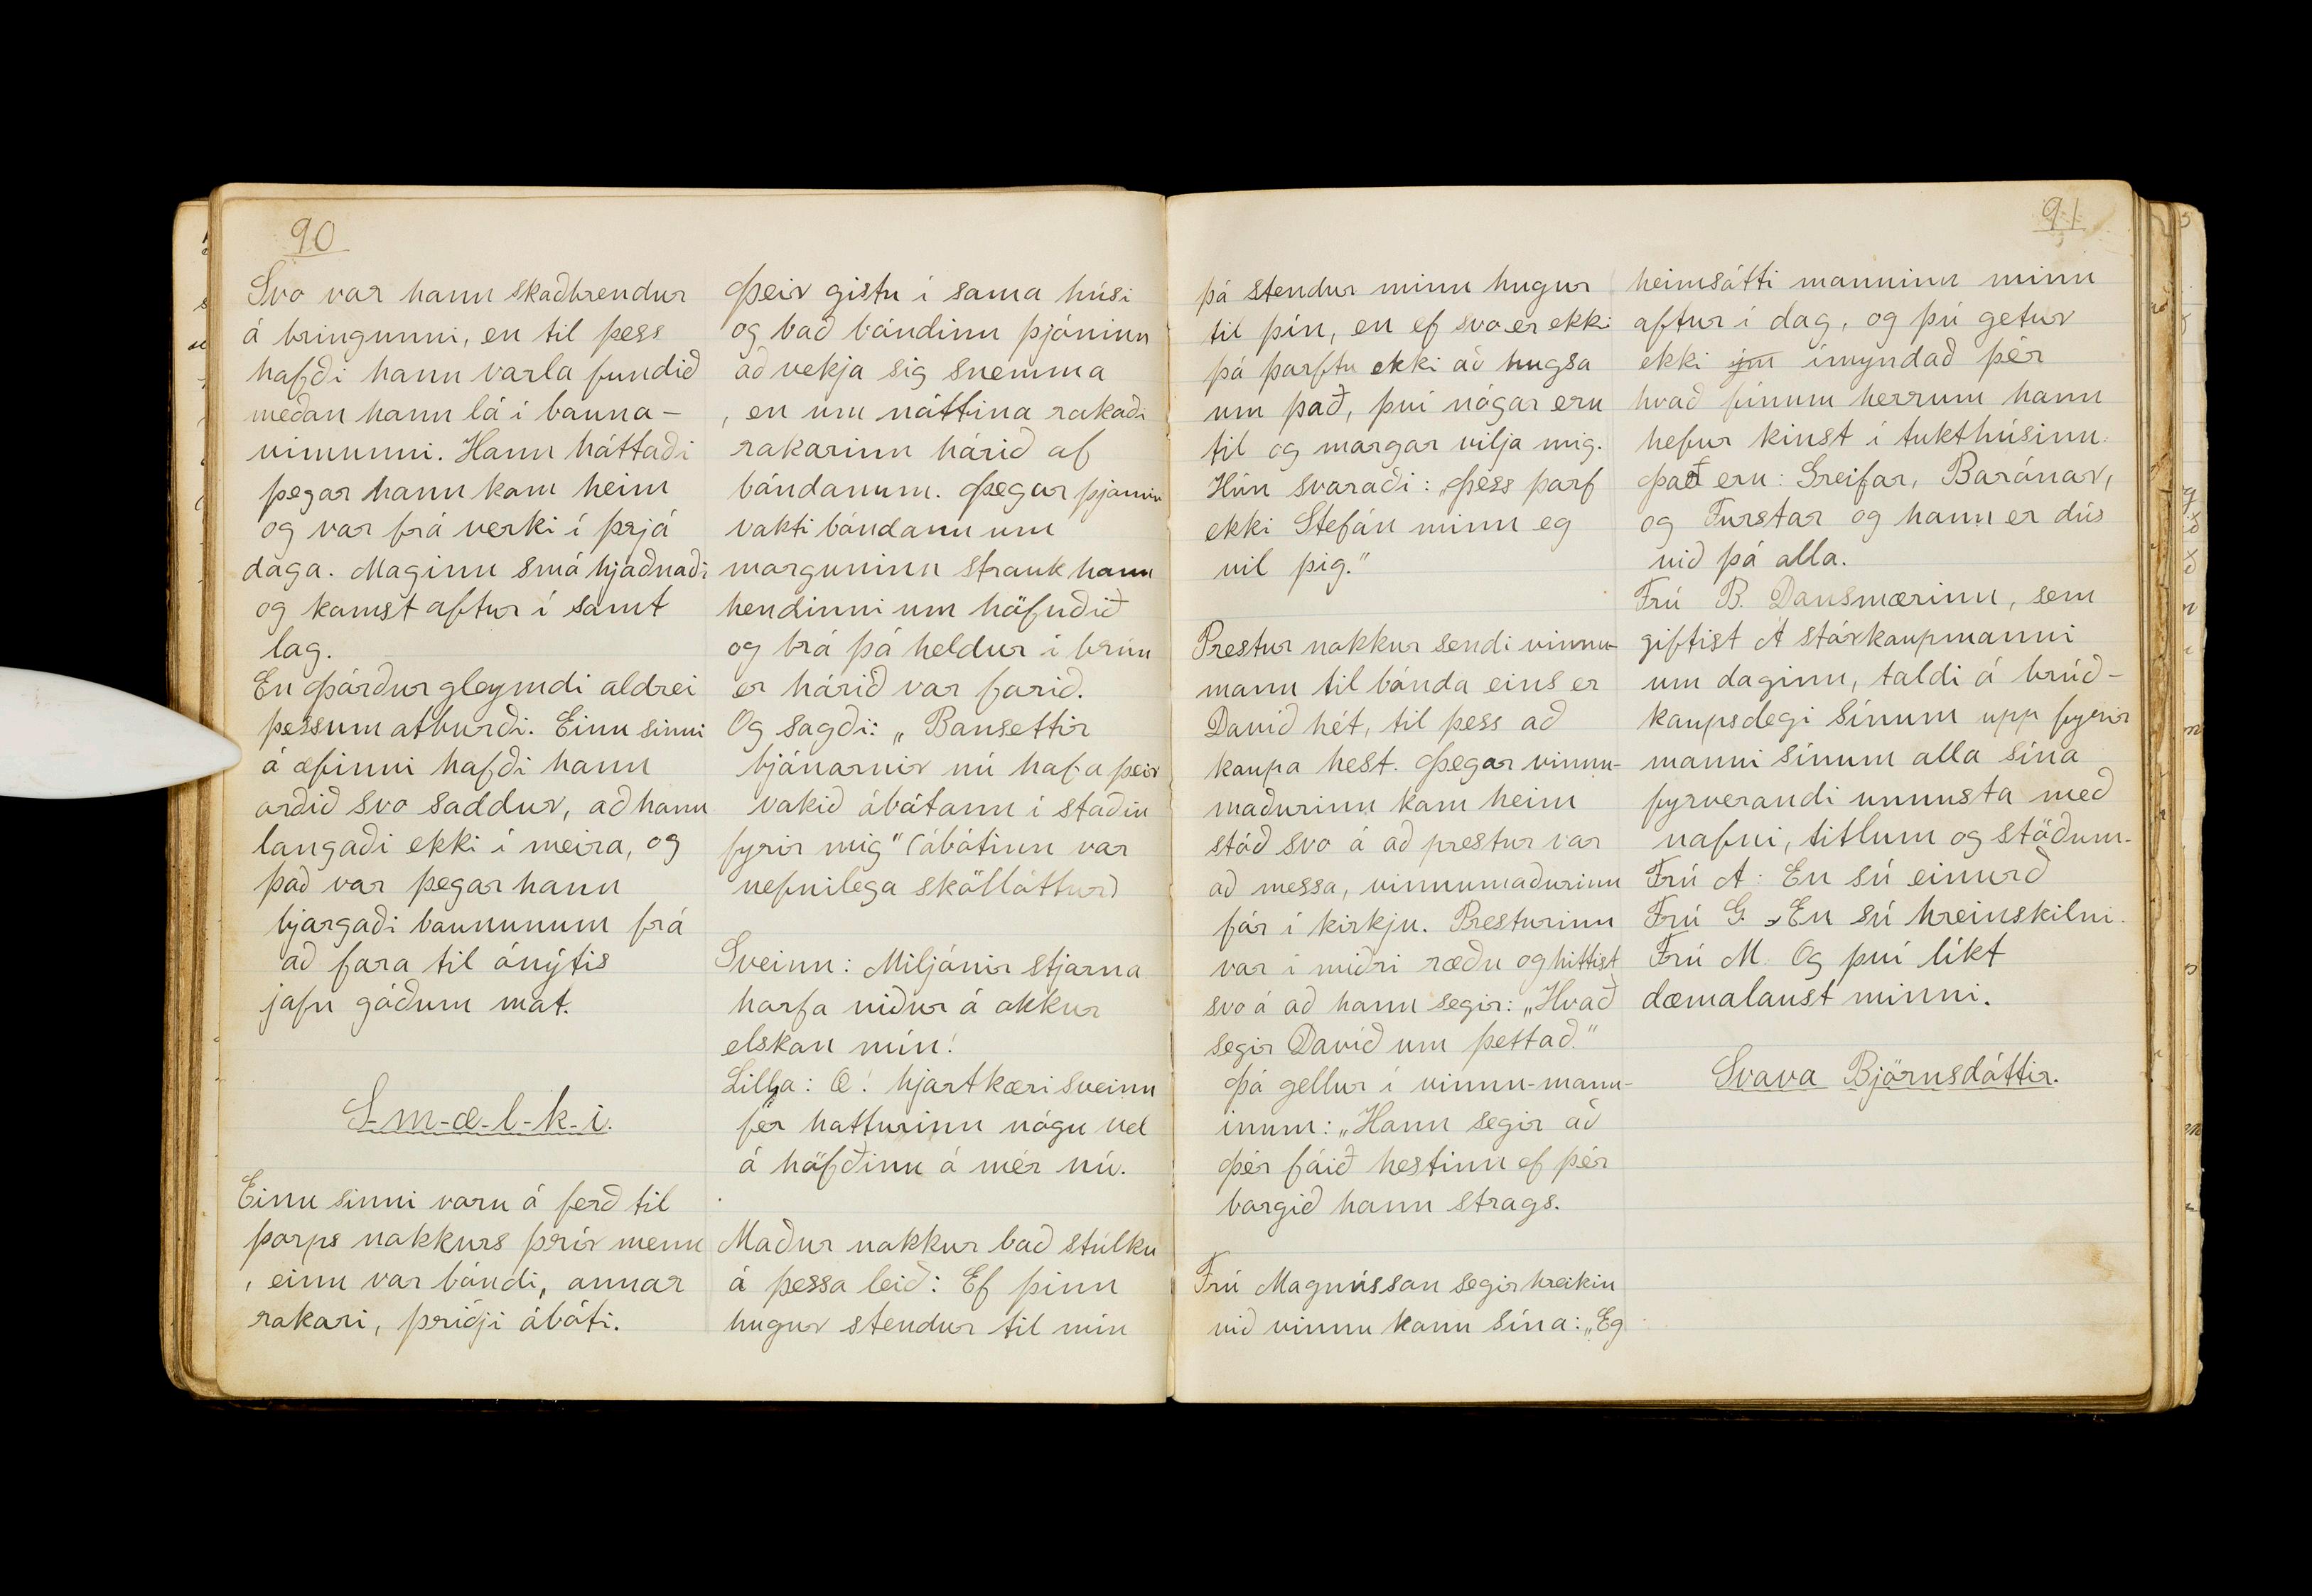 90
Svo var hann skaðbrendur
á bringunni, en til þess
hafði hann varla fundið
meðan hann lá í bauna-
vímunni. Hann háttaði
þegar hann kom heim
og var frá verki í þrjá
daga. Maginn smá hjaðnaði
og komst aftur í samt
lag.
En Þórður gleymdi aldrei
þessum atburði. Einu sinni
á æfinni hafði hann
orðið svo saddur, að hann
langaði ekki í meira, og
það var þegar hann
bjargaði baununum frá
að fara til ónýtis
jafn góðum mat.
S-m-æ-l-k-i.
Einu sinni voru á ferð til
þorps nokkurs þrír menn
, einn var bóndi, annar
rakari, þriðji ábóti.
Þeir gistu í sama húsi
og bað bóndinn þjóninn
að vekja sig snemma
, en um nóttina rakaði
rakarinn hárið af
bóndanum. Þegar þjónnin
vakti bóndann um
morguninn strauk hann
hendinni um höfuðið
og brá þá heldur í brún
er hárið var farið.
Og sagði: „Bansettir
bjánarnir nú hafa þeir
vakið ábótann í staðin
fyrir mig" (ábótinn var
nefnilega sköllóttur)
Sveinn: Miljónir stjarna
horfa niður á okkur
elskan mín!
Lilla: Æ! hjartkæri sveinn
fer hatturinn nógu vel
á höfðinu á mér nú.
Maður nokkur bað stúlku
á þessa leið: Ef þinn
hugur stendur til mín
91
þá stendur minn hugur
til þín, en ef svo er ekki
þá þarftu ekki að hugsa
um það, því nógar eru
til og margar vilja mig.
Hún svaraði: „Þess þarf
ekki Stefán minn eg
vil þig."
Prestur nokkur sendi vinnu-
mann til bónda eins er
Davíð hét, til þess að
kaupa hest. Þegar vinnu-
maðurinn kom heim
stóð svo á að prestur var
að messa, vinnumaðurinn
fór í kirkju. Presturinn
var í miðri ræðu og hittist
svo á að hann segir: „Hvað
segir Davíð um þettað."
Þá gellur í vinnu-mann-
inum: „Hann segir að
Þér fáið hestinn ef þér
borgið hann strags.
Frú Magnússon segir hreikin
við vinnu konu sína: „Eg
heimsótti manninn minn
aftur í dag, og þú getur
ekki ím ímyndað þér
hvað fínum herrum hann
hefur kinst í tukthúsinu.
Það eru: Greifar, Barónar,
og Furstar og hann er dús
við þá alla.
Frú B. Dansmærinn, sem
giftist A stórkaupmanni
um daginn, taldi á brúð-
kaupsdegi sínum upp fyrir
manni sínum alla sína
fyrverandi unnusta með
nafni, titlum og stöðum.
Frú A: En sú einurð
Frú G. En sú hreinskilni.
Frú M. Og því líkt
dæmalaust minni.
Svava Björnsdóttir.